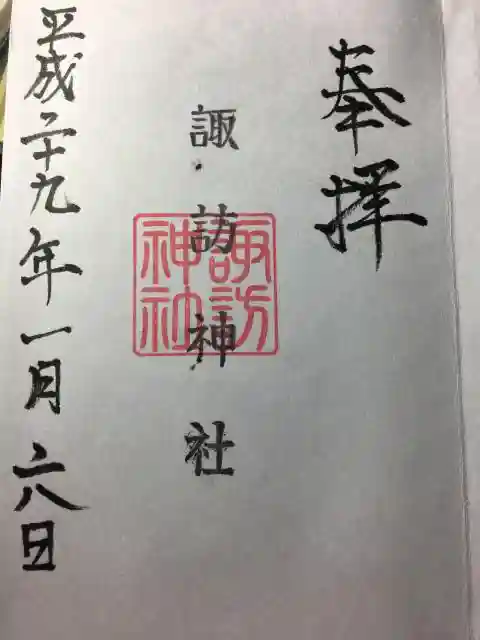 奉拝
諏訪神社
諏訪
神社
平成二十九年一月六日